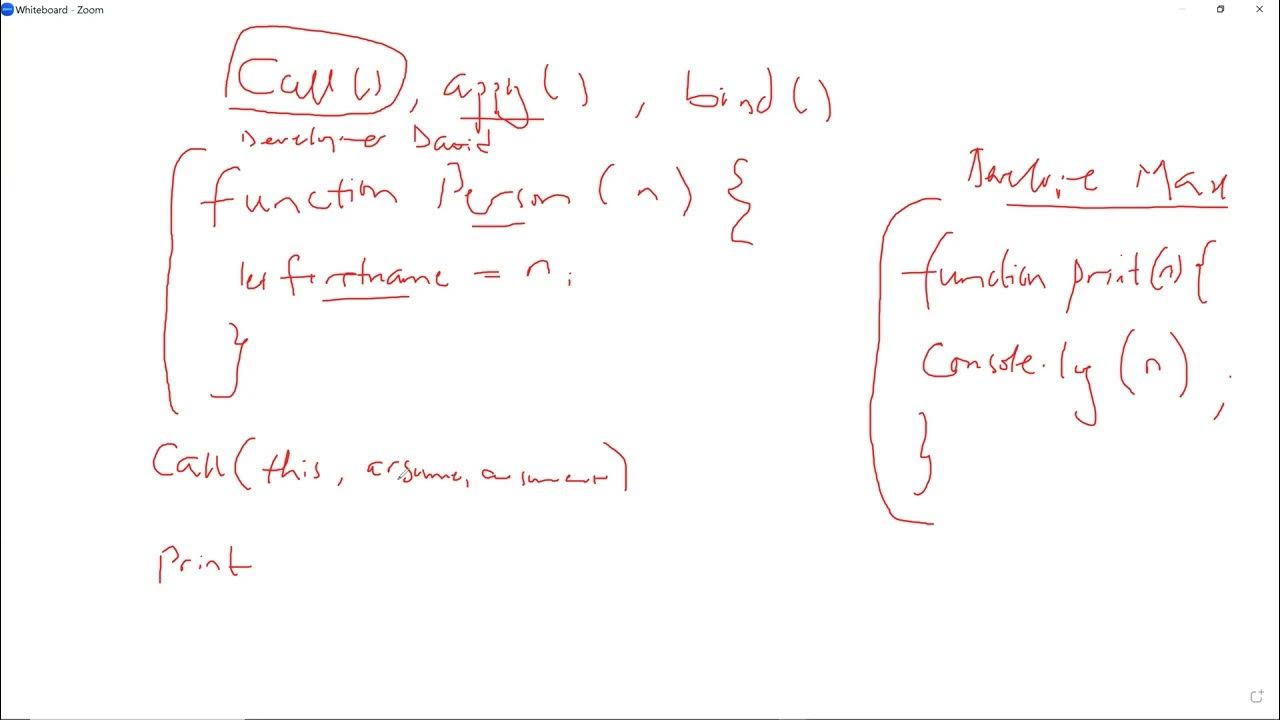 Whiteboard - Zoom
Call(), apply(), bind()
Developer David
function Person(n) {
let firstname = n;
}
Call(this, argume, argument)
Print
Max
function print(n){
Console.log(n);
}